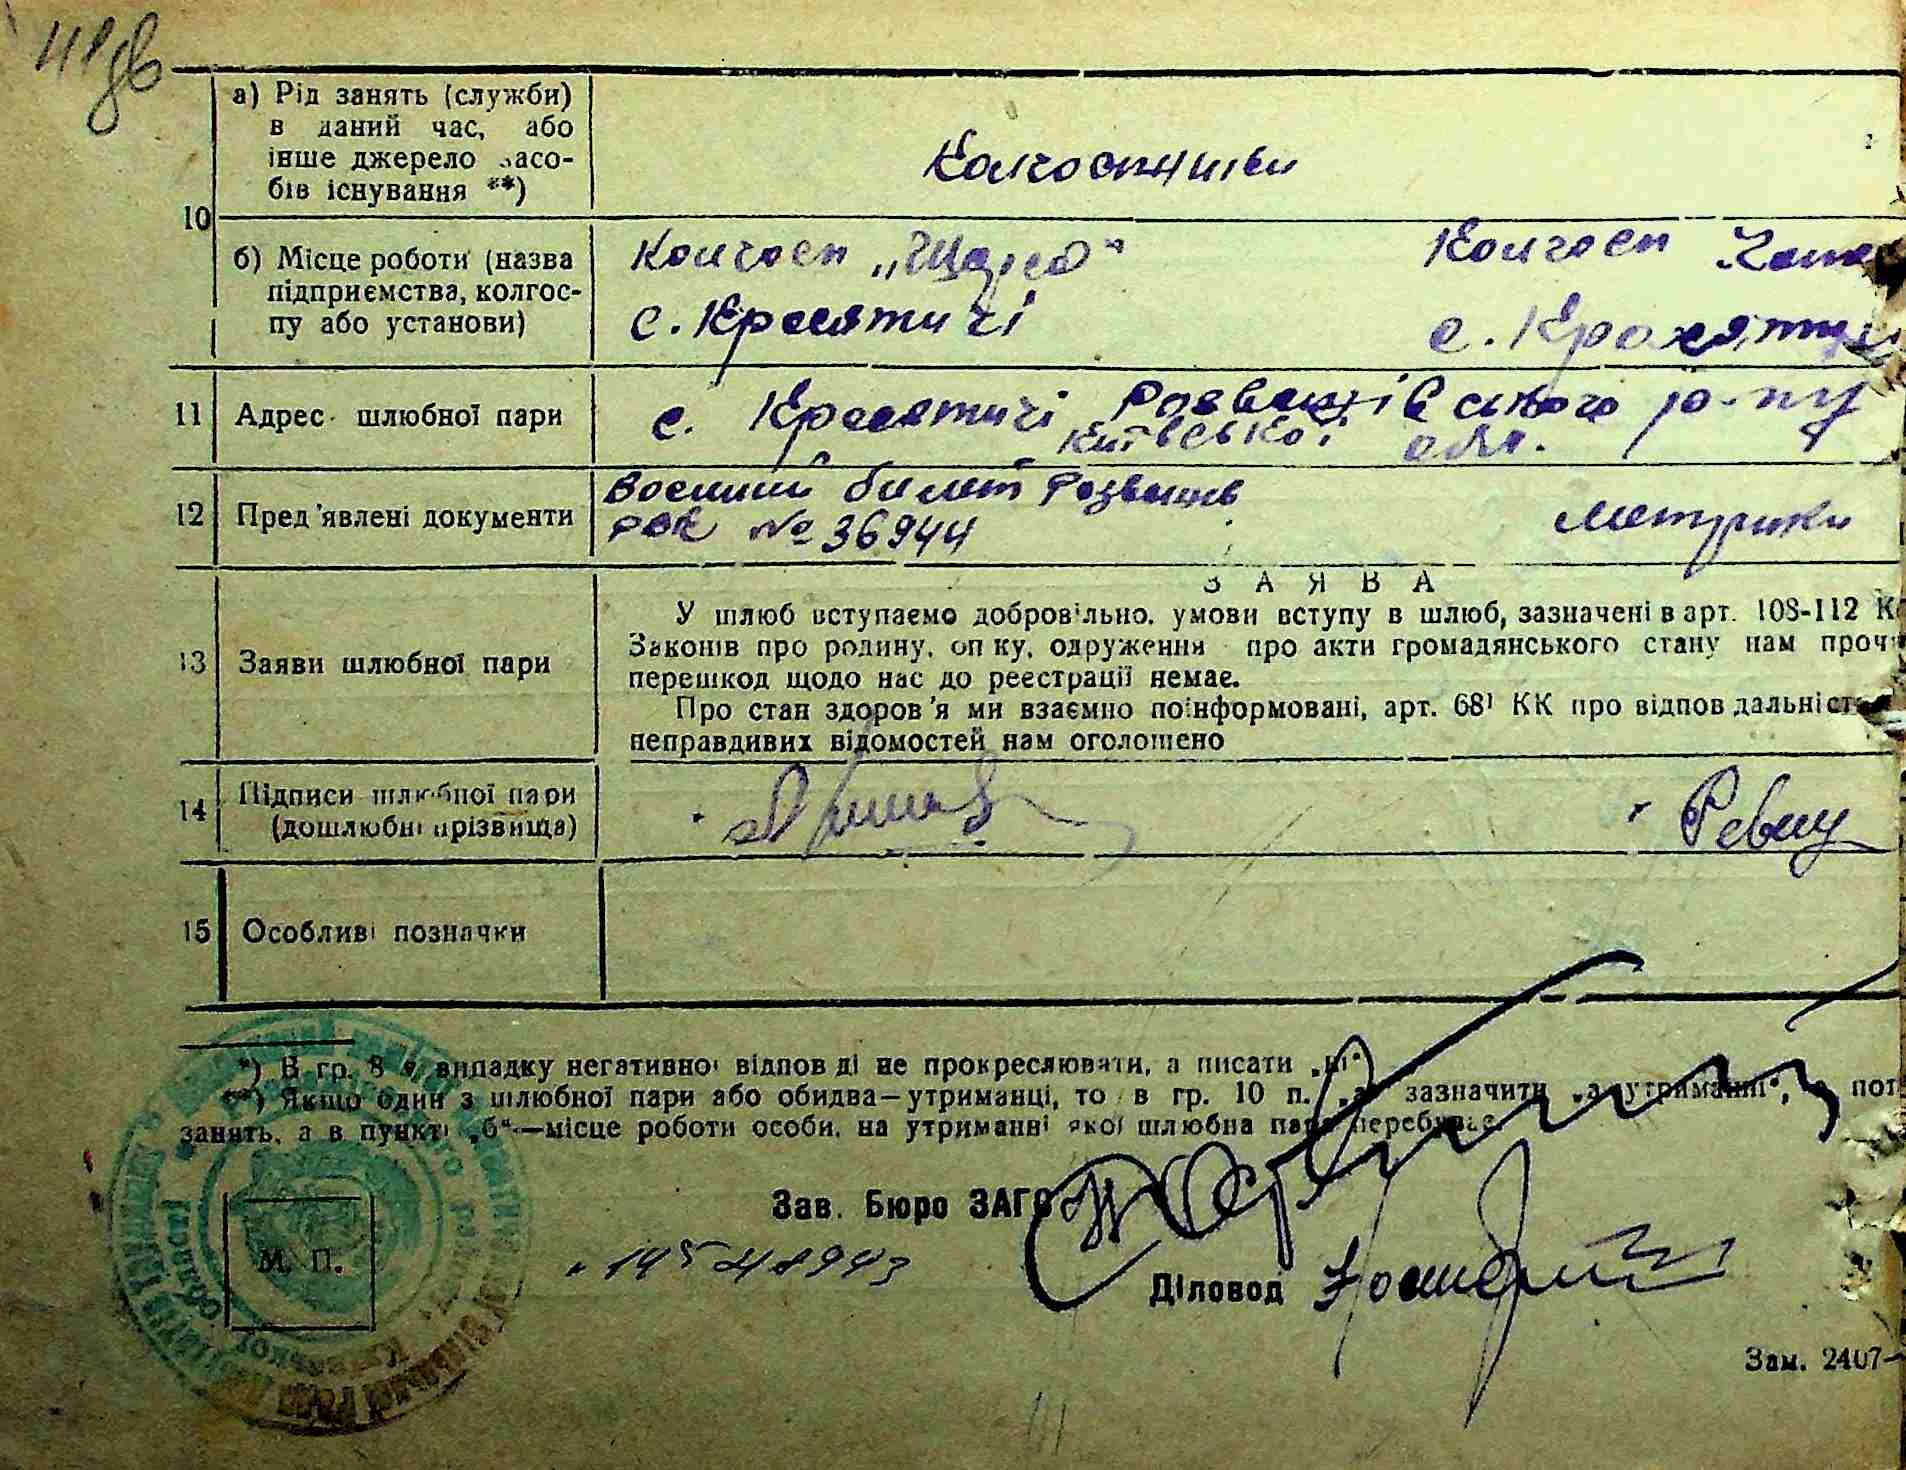 а) Рід занять (служби)
в даний час, або
інше джерело засо-
бів існування **)
Колгоспники
10
б) Місце роботи (назва
підприємства, колгос-
пу або установи)
Колгосп „Щорса"
с. Красятичі
Колгосп
с. Красятичі
11
Адрес шлюбної пари
с. Красятичі Розважівського р-ну
Київської обл.
12
Пред'явлені документи
Воєнний билет Розважів
РВК № 36944
метрики
З А Я В А
13
Заяви шлюбної пари
У шлюб вступаємо добровільно, умови вступу в шлюб, зазначені в арт. 108-112
Законів про родину, опіку, одруження про акти громадянського стану нам
перешкод щодо нас до реєстрації немає.
Про стан здоров'я ми взаємно поінформовані, арт. 68¹ КК про відповідальність
неправдивих відомостей нам оголошено
14
Підписи шлюбної пари
(дошлюбні прізвища)
15
Особливі позначки
*) В гр. 8 у випадку негативної відповіді не прокреслювати, а писати „ні"
**) Якщо один з шлюбної пари або обидва—утриманці, то в гр. 10 п. „а" зазначити „на утриманні",
занять, а в пункті „б"—місце роботи особи, на утриманні якої шлюбна пара перебуває.
Зав. Бюро ЗАГС
М. П.
Діловод
Зам. 2407